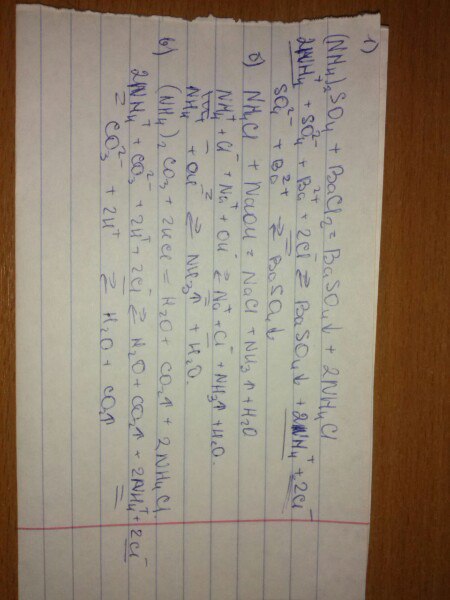 1)
(NH4)2SO4 + BaCl2 = BaSO4↓ + 2NH4Cl
2NH4⁺ + SO4²⁻ + Ba²⁺ + 2Cl⁻ ⇄ BaSO4↓ + 2NH4⁺ + 2Cl⁻
SO4²⁻ + Ba²⁺ ⇄ BaSO4↓
б) NH4Cl + NaOH = NaCl + NH3↑ + H2O
NH4⁺ + Cl⁻ + Na⁺ + OH⁻ ⇄ Na⁺ + Cl⁻ + NH3↑ + H2O.
NH4⁺ + OH⁻ ⇄ NH3↑ + H2O.
в) (NH4)2CO3 + 2HCl = H2O + CO2↑ + 2NH4Cl.
2NH4⁺ + CO3²⁻ + 2H⁺ + 2Cl⁻ ⇄ H2O + CO2↑ + 2NH4⁺ + 2Cl⁻
⇄ CO3²⁻ + 2H⁺ ⇄ H2O + CO2↑